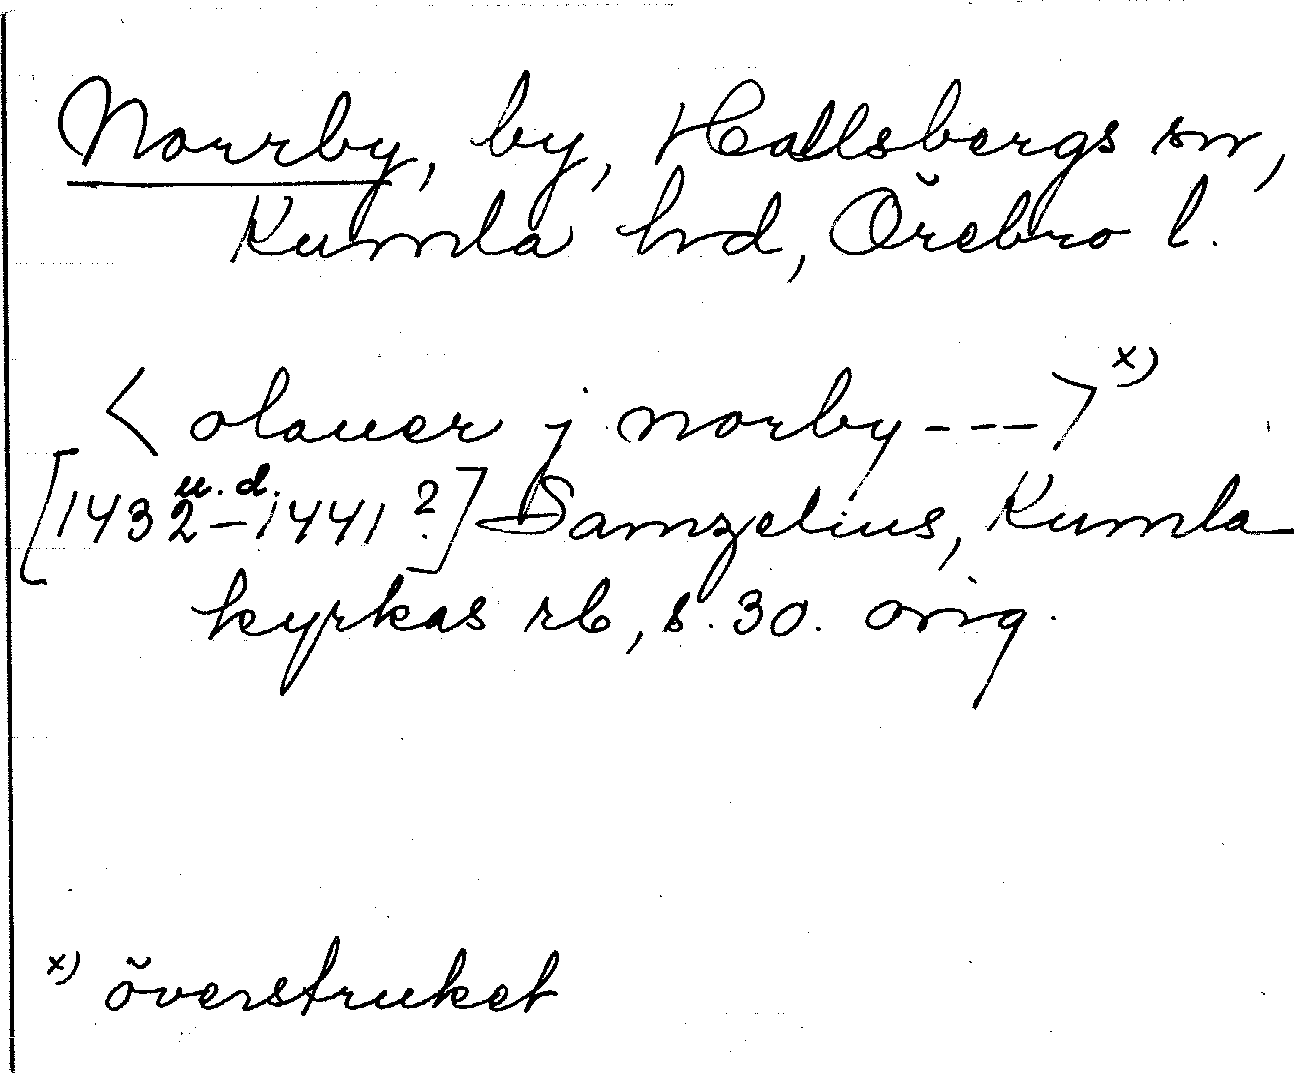 Norrby, by, Hallsbergs sn,
Kumla hd, Örebro l.
< olauer j norby --- > x)
u. d.
[1432–1441?] Samzelius, Kumla
kyrkas rb, s. 30. orig.
x) överstruket